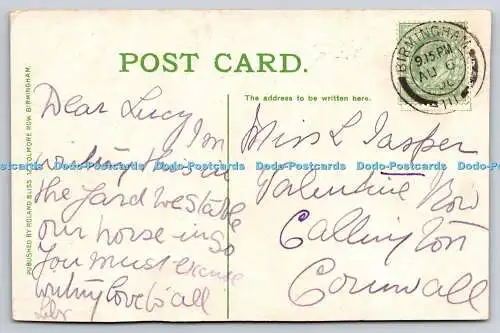 POST CARD.
The address to be written here.
PUBLISHED BY ROLAND BLISS COLMORE ROW BIRMINGHAM.
BIRMINGHAM
9.15 PM
AU 6
06
Dear Lucy Im
writing this in
the yard we stable
our horse in so
you must excuse
writing love to all
Miss L Jasper
Valentine Row
Callington
Cornwall
Dodo-Postcards Dodo-Postcards Dodo-Postcards Dodo-Postcards Dodo-Postcards Dodo-Postcards